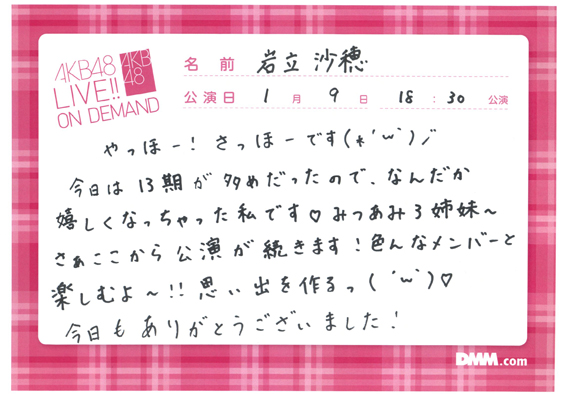 AKB48
LIVE!!
ON DEMAND
AKB
48
名前 岩立 沙穂
公演日 1月 9日 18:30 公演
やっほー!さっほーです(*'ω`)ノ
今日は13期が多めだったので、なんだか
嬉しくなっちゃった私です♡みつあみ3姉妹〜
さぁここから公演が続きます!色んなメンバーと
楽しむよ〜!!思い出を作るっ(´ω`)♡
今日もありがとうございました!
DMM.com